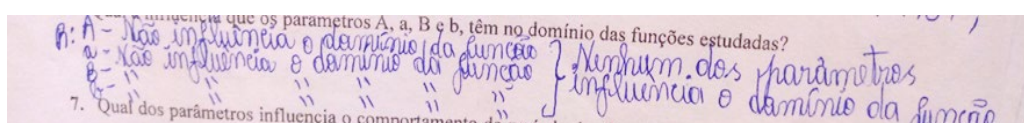 influência que os parâmetros A, a, B e b, têm no domínio das funções estudadas?
R: A - Não influência o domínio da função
a - Não influência o domínio da função } Nenhum dos parâmetros
B - " " " " " " influencia o domínio da função
b - " " " " "
7. Qual dos parâmetros influencia o comportamento